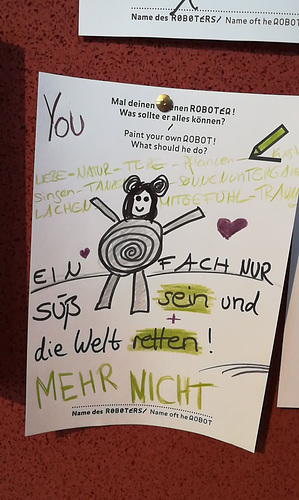 Name des ROBOTERS/ Name oft he ROBOT
You
Mal deinen eigenen ROBOTER!
Was sollte er alles können?
/
Paint your own ROBOT!
What should he do?
LIEBE-NATUR-TIERE-Pflanzen-
singen-TANZEN SONNENUNTERGÄNGE
LACHEN MITGEFÜHL-TRAUM
EIN FACH NUR
süß sein und
+
die Welt retten!
MEHR NICHT
Name des ROBOTERS/ Name oft he ROBOT